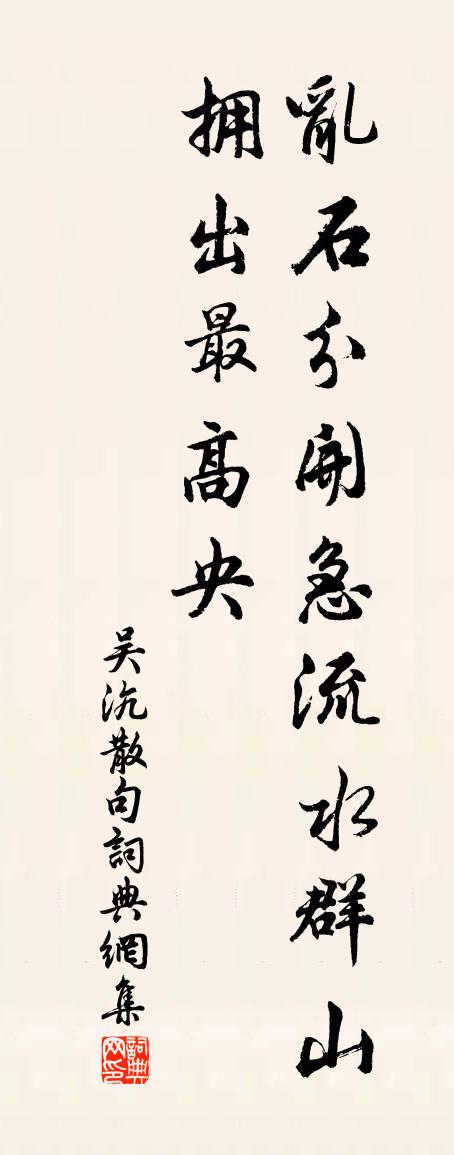 亂石分開急流水群山
拥出最高央
吴沆散句詞典網集
詞典网印